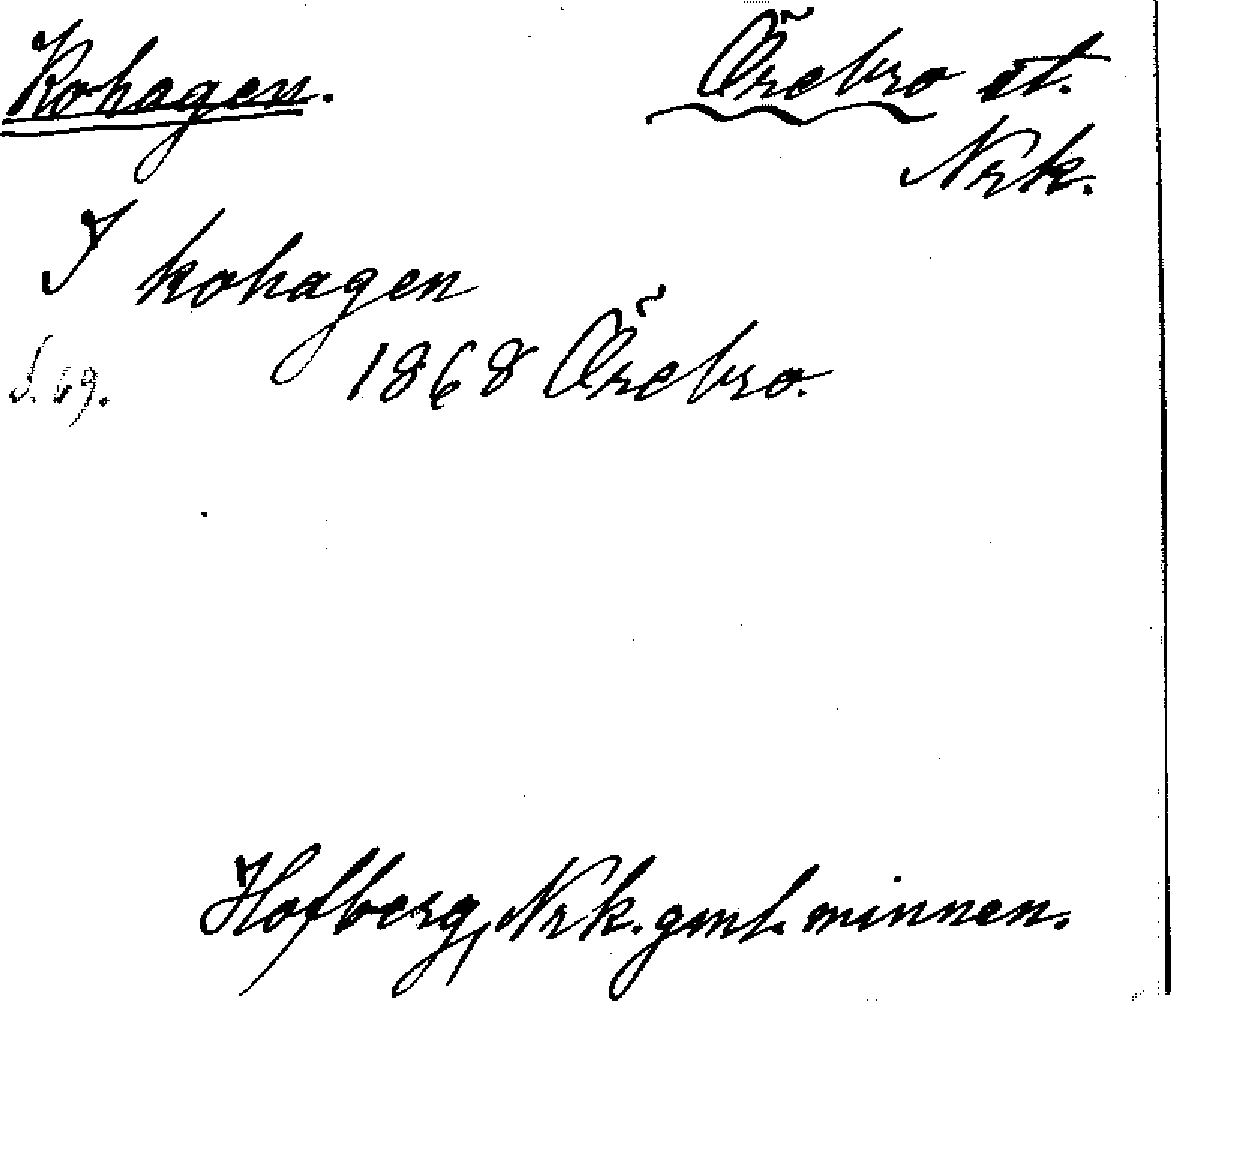 Kohagen. Örebro st.
Nrk.
I kohagen
S. 69. 1868 Örebro.
Hofberg, Nrk. gml. minnen.